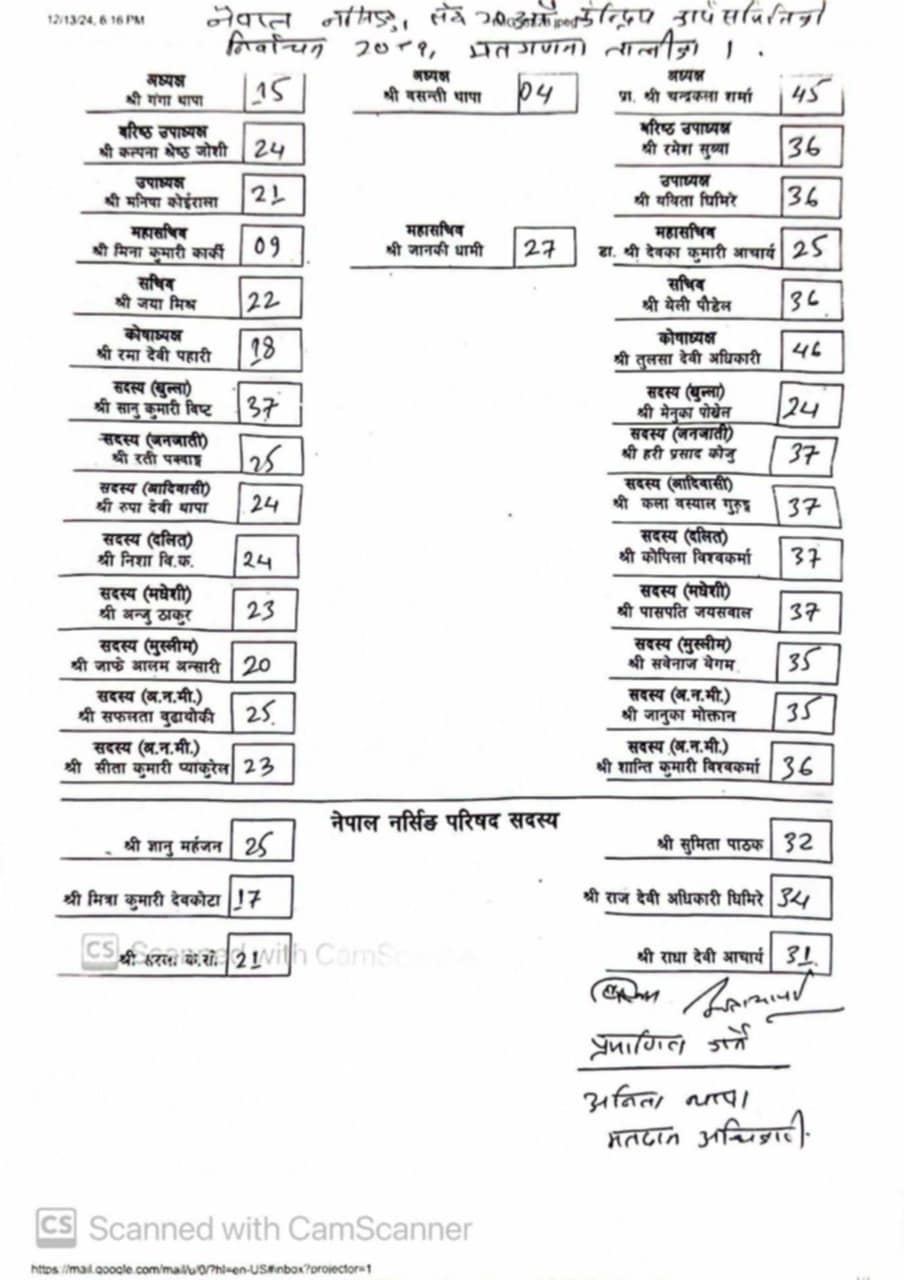 12/13/24, 6:16 PM
नेपाल नर्सिङ्ग संघ केन्द्रिय कार्य समितिको
निर्वाचन २०८१, मतगणना तालीका ।
अध्यक्ष
श्री गंगा थापा 15
अध्यक्ष
श्री बसन्ती थापा 04
अध्यक्ष
प्रा. श्री चन्द्रकला शर्मा 45
बरिष्ठ उपाध्यक्ष
श्री कल्पना श्रेष्ठ जोशी 24
बरिष्ठ उपाध्यक्ष
श्री रमेश सुब्बा 36
उपाध्यक्ष
श्री मनिषा कोईराला 21
उपाध्यक्ष
श्री बविता घिमिरे 36
महासचिव
श्री मिना कुमारी कार्की 09
महासचिव
श्री जानकी धामी 27
महासचिव
डा. श्री देवका कुमारी आचार्य 25
सचिव
श्री जया मिश्र 22
सचिव
श्री बेली पौडेल 36
कोषाध्यक्ष
श्री रमा देवी पहारी 18
कोषाध्यक्ष
श्री तुलसा देवी अधिकारी 46
सदस्य (खुल्ला)
श्री सानु कुमारी विष्ट 37
सदस्य (खुल्ला)
श्री मेनुका पोखेल 24
सदस्य (जनजाती)
श्री रती पक्वाङ्ग 25
सदस्य (जनजाती)
श्री हरी प्रसाद कोजु 37
सदस्य (आदिवासी)
श्री रुपा देवी थापा 24
सदस्य (आदिवासी)
श्री कला बस्याल गुरुङ्ग 37
सदस्य (दलित)
श्री निशा बि.क. 24
सदस्य (दलित)
श्री कोपिला विश्वकर्मा 37
सदस्य (मधेशी)
श्री अन्जु ठाकुर 23
सदस्य (मधेशी)
श्री पासपति जयसवाल 37
सदस्य (मुस्लीम)
श्री जाफे आलम अन्सारी 20
सदस्य (मुस्लीम)
श्री सबेनाज बेगम 35
सदस्य (अ.न.मी.)
श्री सफलता बुढायोकी 25
सदस्य (अ.न.मी.)
श्री जानुका मोक्तान 35
सदस्य (अ.न.मी.)
श्री सीता कुमारी प्याकुरेल 23
सदस्य (अ.न.मी.)
श्री शान्ति कुमारी विश्वकर्मा 36
नेपाल नर्सिङ परिषद सदस्य
श्री ज्ञानु महंजन 25
श्री सुमिता पाठक 32
श्री मित्रा कुमारी देवकोटा 17
श्री राज देवी अधिकारी घिमिरे 34
श्री सरला के.सी. 21
श्री राधा देवी आचार्य 31
प्रमाणित गर्ने
अनिता थापा
मतदान अधिकारी
CS Scanned with CamScanner
CS Scanned with CamScanner
https://mail.google.com/mail/u/0/?hl=en-US#inbox?projector=1